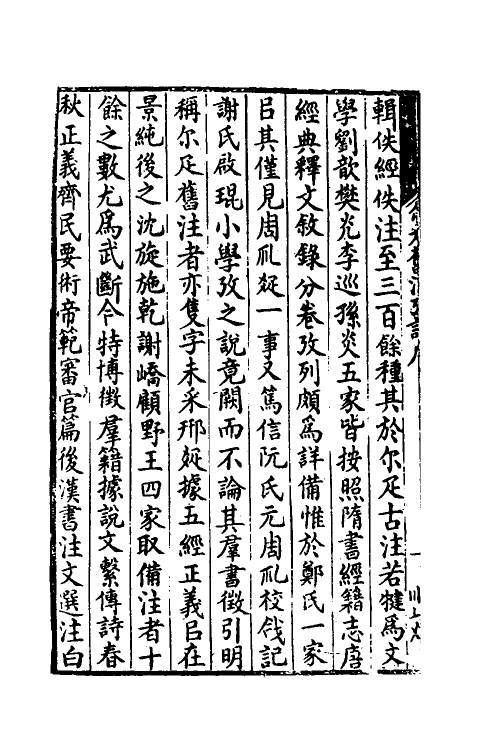 輯佚經佚注至三百餘種其於尔疋古注若犍為文
學劉歆樊光李巡孫炎五家皆按照隋書經籍志唐
經典釋文敘錄分卷攷列頗為詳備惟於鄭氏一家
㠯其僅見周礼疏一事又篤信阮氏元周礼校勘記
謝氏啟琨小學攷之說竟闕而不論其羣書徵引明
稱尔疋舊注者亦隻字未采邢疏據五經正義㠯在
景純後之沈旋施乾謝嶠顧野王四家取備注者十
餘之數尤為武斷今特博徵羣籍據說文繫傳詩春
秋正義齊民要術帝範審官篇後漢書注文選注白